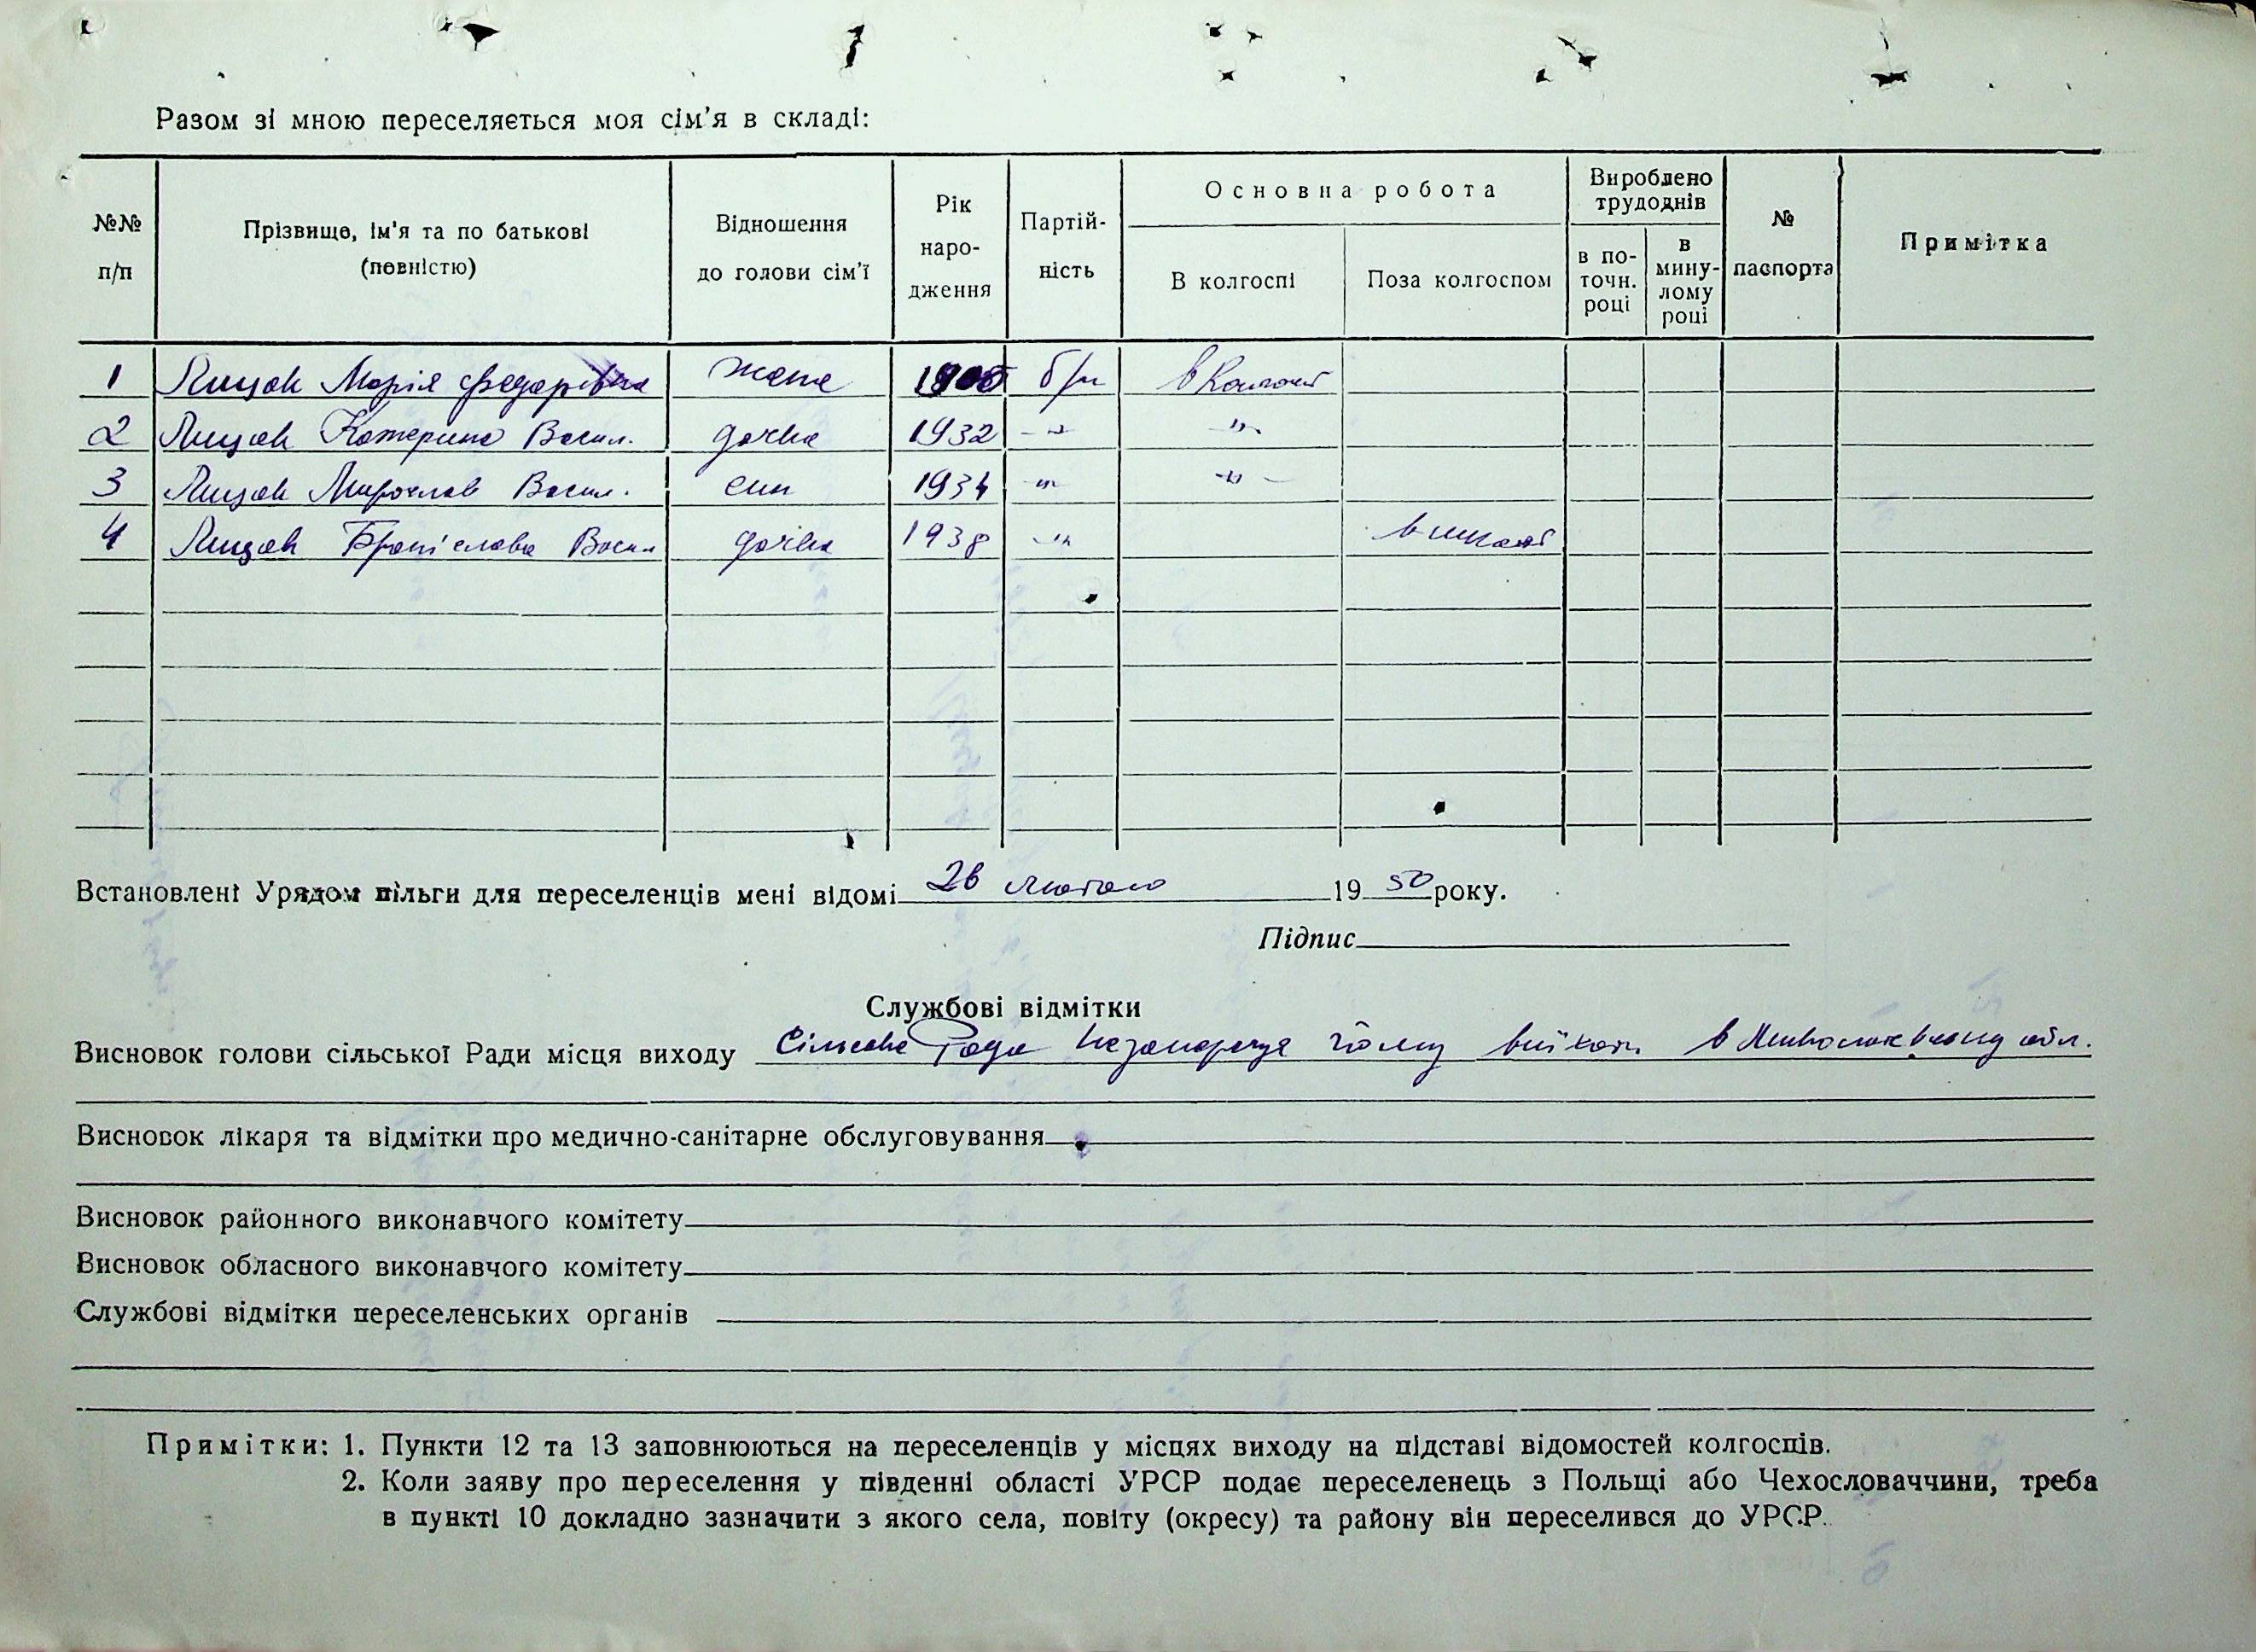 Разом зі мною переселяється моя сім'я в складі:
№№ п/п
Прізвище, ім'я та по батькові (повністю)
Відношення до голови сім'ї
Рік народження
Партійність
Основна робота
В колгоспі
Поза колгоспом
Вироблено трудоднів
в поточн. році
в минулому році
№ паспорта
Примітка
1 Лицак Марія Федорівна жена 1905 б/п в колгоспі
2 Лицак Катерина Васил. дочка 1932 -"- -"-
3 Лицак Мирослав Васил. син 1934 -"- -"-
4 Лицак Броніслава Васил дочка 1938 -"- в школі
Встановлені Урядом пільги для переселенців мені відомі 26 лютого 1950 року.
Підпис
Службові відмітки
Висновок голови сільської Ради місця виходу Сільська Рада незаперечує виїхати в Миколаєвську обл.
Висновок лікаря та відмітки про медично-санітарне обслуговування
Висновок районного виконавчого комітету
Висновок обласного виконавчого комітету
Службові відмітки переселенських органів
Примітки: 1. Пункти 12 та 13 заповнюються на переселенців у місцях виходу на підставі відомостей колгоспів.
2. Коли заяву про переселення у південні області УРСР подає переселенець з Польщі або Чехословаччини, треба
в пункті 10 докладно зазначити з якого села, повіту (округу) та району він переселився до УРСР.